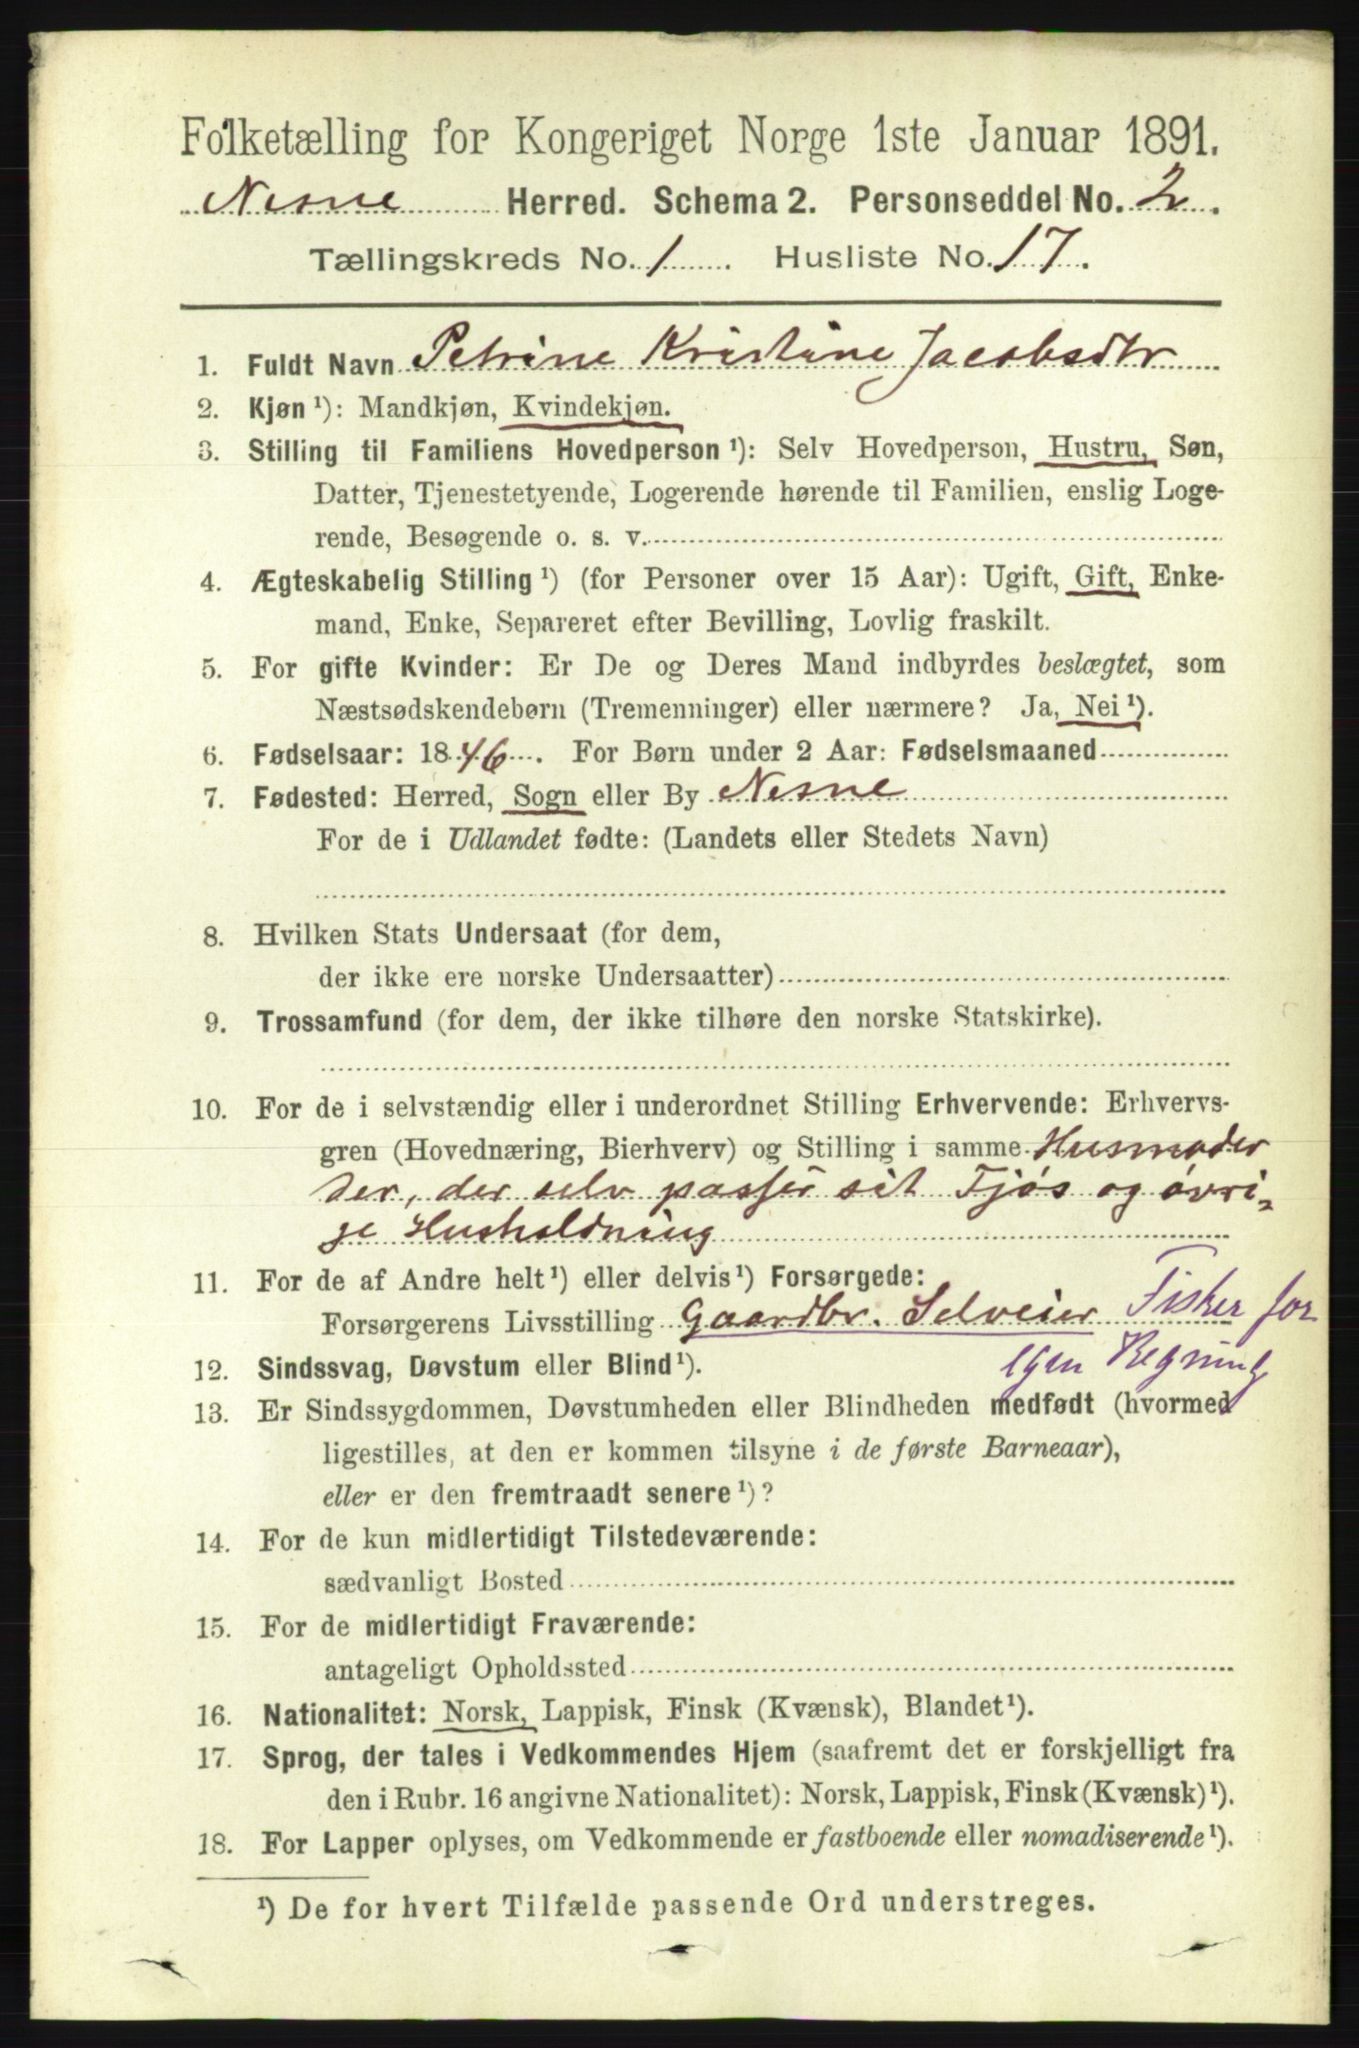 Folketælling for Kongeriget Norge 1ste Januar 1891.
Nesne Herred. Schema 2. Personseddel No. 2.
Tællingskreds No. 1. Husliste No. 17.
1. Fuldt Navn Petrine Kristine Jacobsdtr
2. Kjøn ¹): Mandkjøn, Kvindekjøn.
3. Stilling til Familiens Hovedperson ¹): Selv Hovedperson, Hustru, Søn,
Datter, Tjenestetyende, Logerende hørende til Familien, enslig Loge-
rende, Besøgende o. s. v.
4. Ægteskabelig Stilling ¹) (for Personer over 15 Aar): Ugift, Gift, Enke-
mand, Enke, Separeret efter Bevilling, Lovlig fraskilt.
5. For gifte Kvinder: Er De og Deres Mand indbyrdes beslægtet, som
Næstsødskendebørn (Tremenninger) eller nærmere? Ja, Nei ¹).
6. Fødselsaar: 1846. For Børn under 2 Aar: Fødselsmaaned
7. Fødested: Herred, Sogn eller By Nesne
For de i Udlandet fødte: (Landets eller Stedets Navn)
8. Hvilken Stats Undersaat (for dem,
der ikke ere norske Undersaatter)
9. Trossamfund (for dem, der ikke tilhøre den norske Statskirke).
10. For de i selvstændig eller i underordnet Stilling Erhvervende: Erhvervs-
gren (Hovednæring, Bierhverv) og Stilling i samme Husmoder
der, der selv passer sit Fjøs og øvri-
ge Husholdning
11. For de af Andre helt ¹) eller delvis ¹) Forsørgede:
Forsørgerens Livsstilling Gaardbr. Selveier Fisker for
egen Regning
12. Sindssvag, Døvstum eller Blind ¹).
13. Er Sindssygdommen, Døvstumheden eller Blindheden medfødt (hvormed
ligestilles, at den er kommen tilsyne i de første Barneaar),
eller er den fremtraadt senere ¹)?
14. For de kun midlertidigt Tilstedeværende:
sædvanligt Bosted
15. For de midlertidigt Fraværende:
antageligt Opholdssted
16. Nationalitet: Norsk, Lappisk, Finsk (Kvænsk), Blandet ¹).
17. Sprog, der tales i Vedkommendes Hjem (saafremt det er forskjelligt fra
den i Rubr. 16 angivne Nationalitet): Norsk, Lappisk, Finsk (Kvænsk) ¹).
18. For Lapper oplyses, om Vedkommende er fastboende eller nomadiserende ¹).
¹) De for hvert Tilfælde passende Ord understreges.